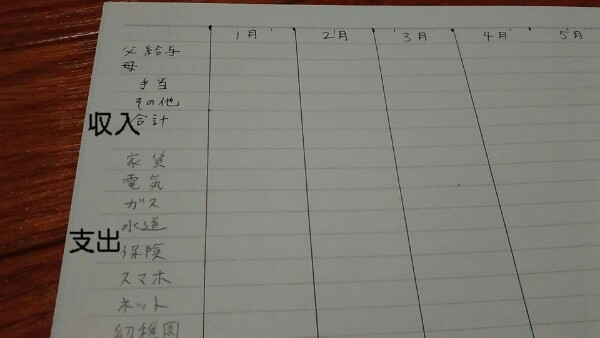 1月 2月 3月 4月 5月
父 給与
母
手当
その他
収入 合計
家賃
電気
ガス
水道
支出 保険
スマホ
ネット
幼稚園